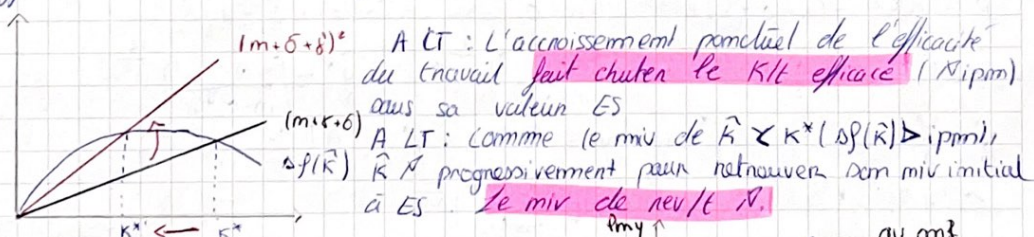 (m+δ+γ')²
A CT : L'accroissement ponctuel de l'efficacité
du travail fait chuter le K/t efficace (↗ipm)
sous sa valeur ES
(m+γ+δ)
A LT : Comme le niv de k̂ < K* (sf(k̂) > ipm),
sf(k̂)
k̂ ↗ progressivement pour retrouver son niv initial
à ES. Le niv de rev/t ↗.
Pmy ↑
K*' ← K*